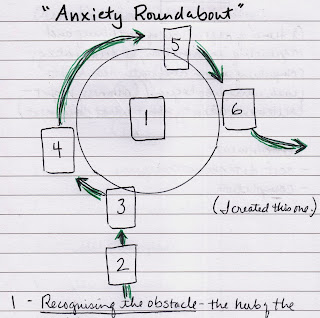 "Anxiety Roundabout"
5
1
6
4
3
(I created this one.)
2
1 - Recognising the obstacle - the hub of the